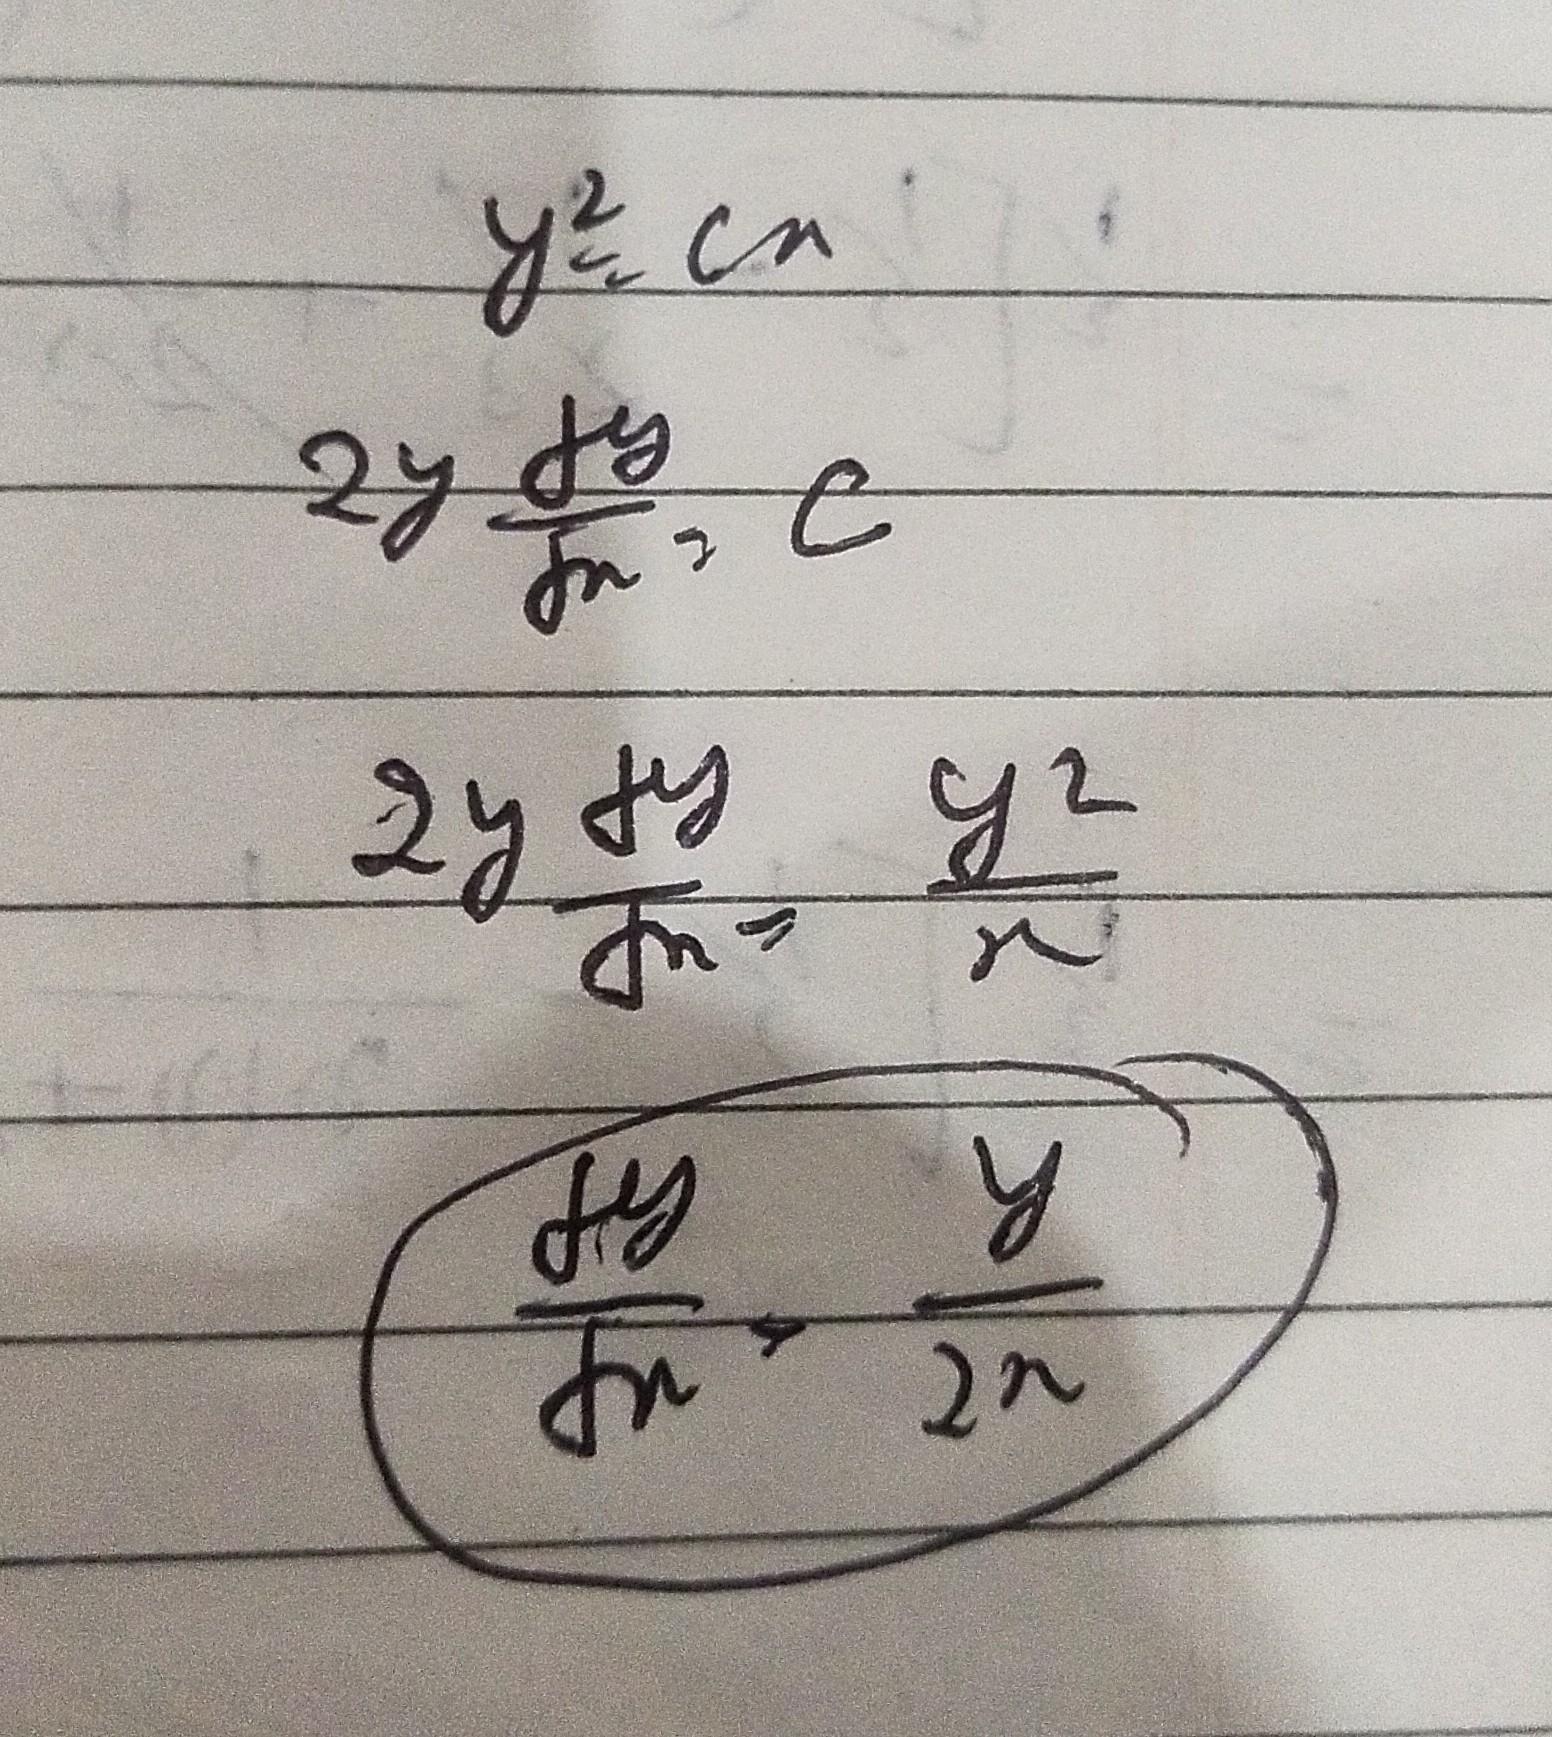 y² = cx
2y dy/dx = c
2y dy/dx = y²/x
dy/dx = y/2x